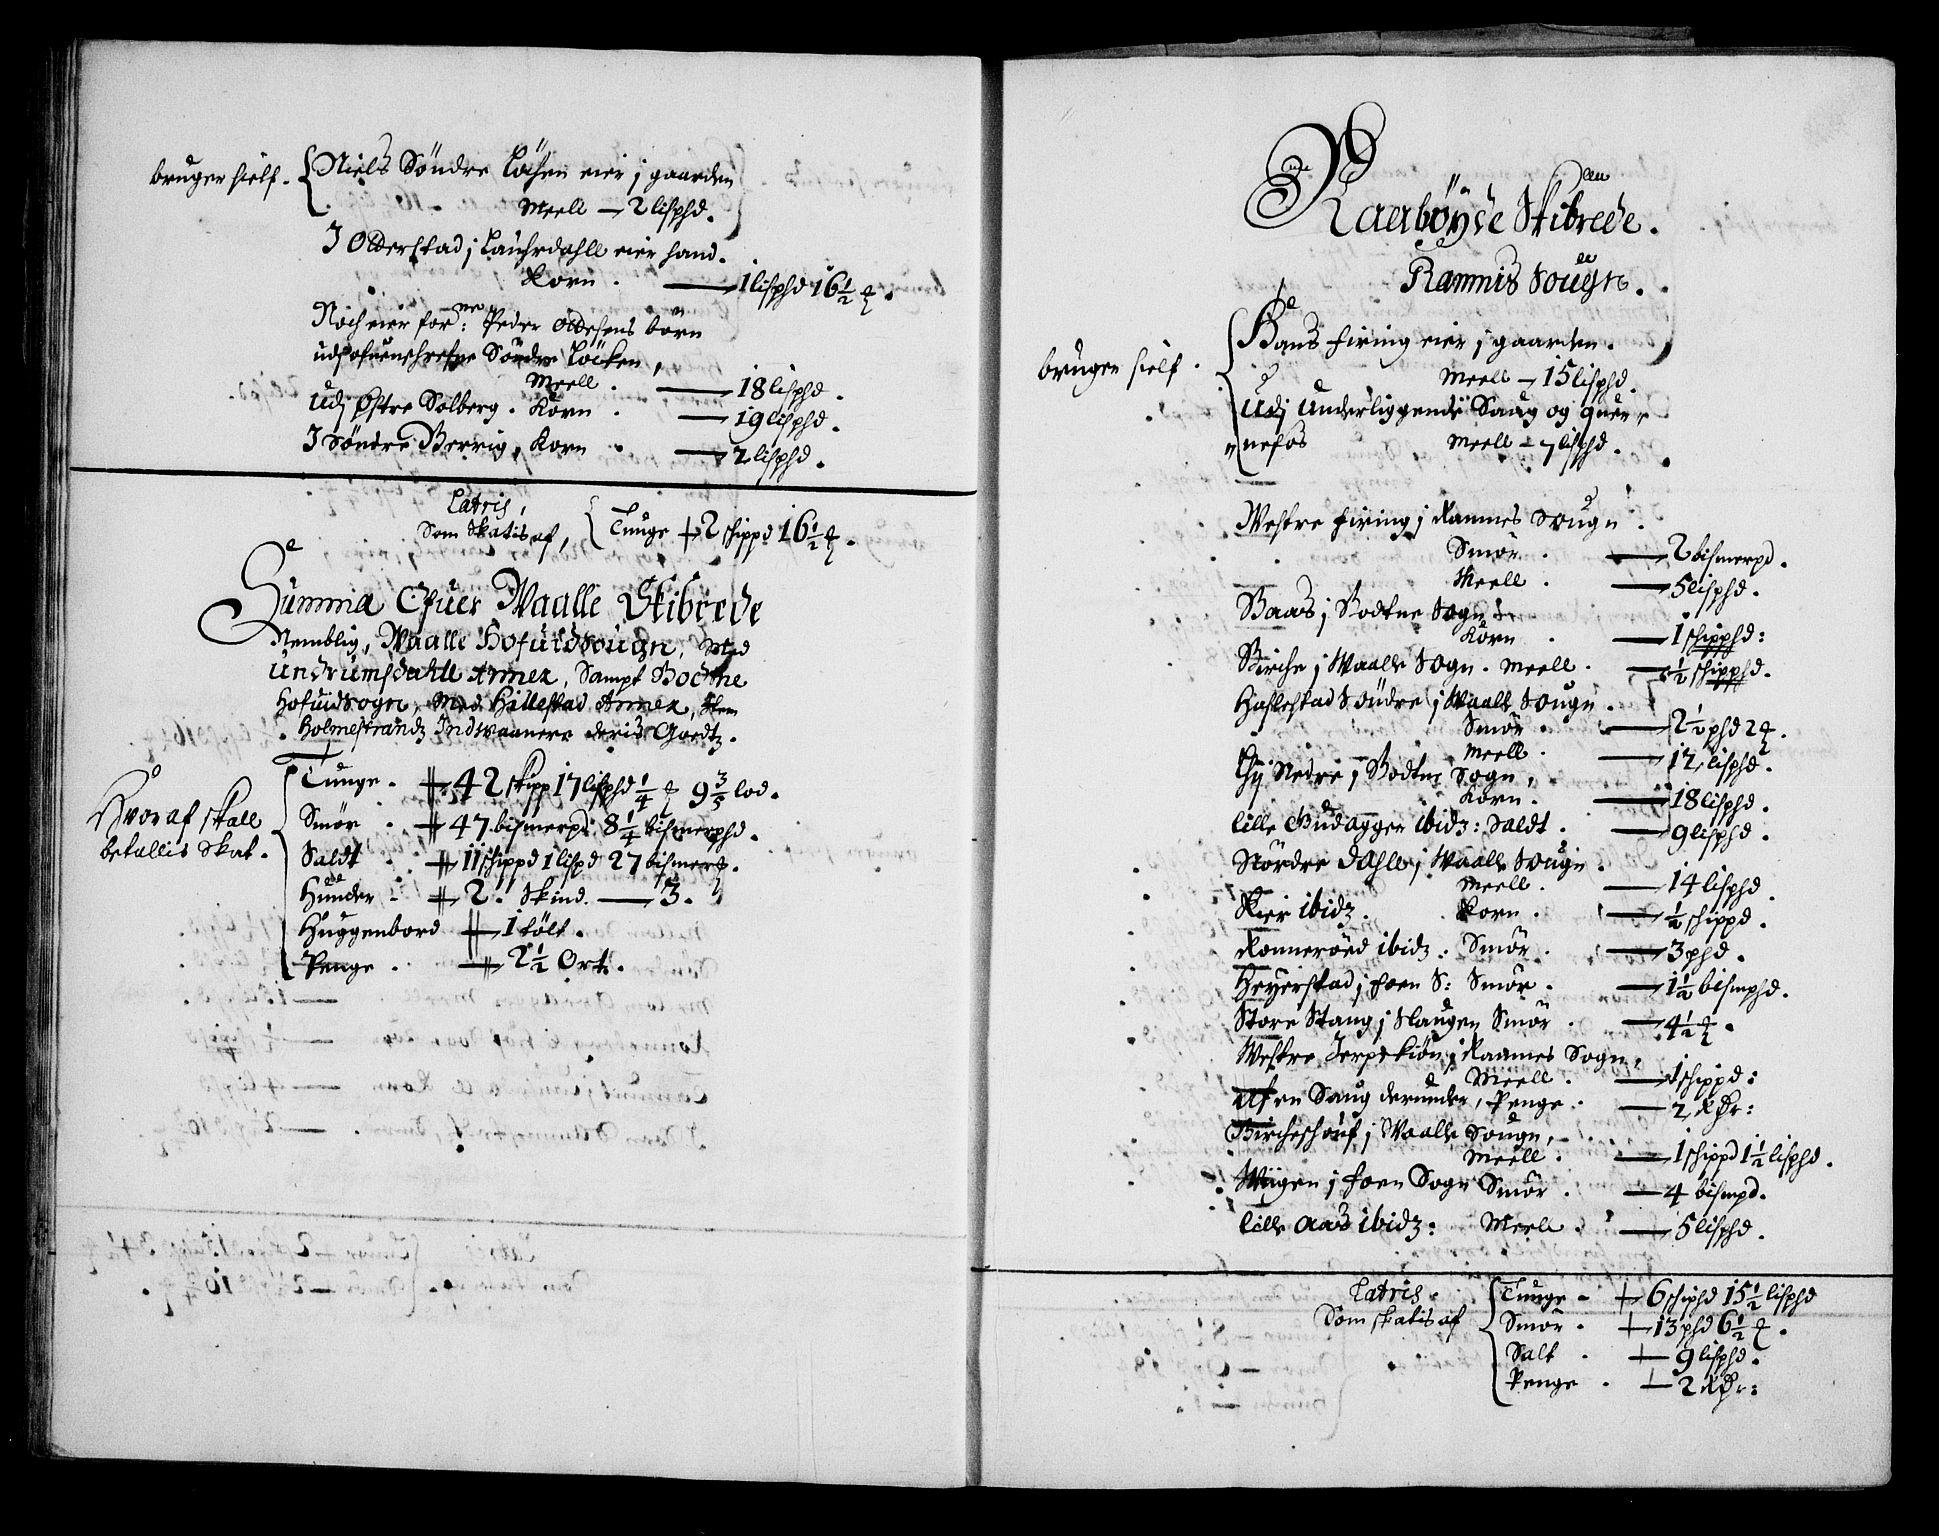 bruger sielf. Niels Söndre Löchen eier j gaarden
Meell — 2 lisphd.
J Olderstad j Lauhrdahll eier hand.
Korn. — 1 lisphd 16 1/2 ₰.
Noch eier forne: Peder Oldesens börn
udj ofuenschrefne Söndre Löcken,
Meell. — 18 lisphd.
Udj Østre Solberg. Korn. — 19 lisphd.
J Söndre Berrig, Korn. — 2 lisphd.
Latris,
Som Skatis af, Tunge 2 schippd 16 1/2 ₰.
Summa Ofuer Waalle Skibrede
Nemblig, Waalle Hofuidsougn, Med
Undrumsdahll Annex, Sampt Bodtne
Hofuidsogn, Med Hillestad Annex, Item
Holmestrandz Indwaanere deris Goedtz.
Hvoraf skall
betallis Skat.
Tunge. 42 skipp 17 lisphd 1/4 ₰ 9 3/5 lod.
Smör. 47 bismerpd: 8 1/4 bismerphd.
Saldt. 11 schippd 1 lispd 27 bismer₰.
Hunder 2. Skind. — 3.
Huggenbord 1 tölt.
Penge. 2 1/2 Ort.
Raaebøydelau Skibrede.
Ramnis Sougn.
bruger sielf. Hans Firing eier j gaarden.
Meell — 15 lisphd.
Udj underliggende Saug og quer-
nefos Meell — 7 lisphd.
Westre Firing j Ramnes Sougn.
Smör. — 2 bismerpd.
Meell. — 5 lisphd.
Baas j Bodtne Sogn
Korn. — 1 schipphd:
Birche j Waalle Sogn. Meell. — 1/2 schipphd.
Haslestad Söndre j Waalle Sougn.
Smör. — 2 1/2 phd 2 ₰.
Meell. — 12 lisphd.
Nedre j Bodtne Sogn,
Korn. — 18 lisphd.
Lille Gudagger ibidz: Saldt. — 9 lisphd.
Nördre Dahle j Waalle Sougn.
Meell. — 14 lisphd
Skier ibidz. Korn. — 1/2 schippd.
Ronneröed ibidz. Smör. — 3 phd.
Heyerstad j Foen S: Smör. — 1 1/2 bismphd.
Store Stang j Slaugen Smör. — 4 1/2 ₰.
Westre Jerpekiön j Raames Sogn,
Meell. — 1 schippd:
Af en Saug derunder, Penge. — 2 Rdr:
Bircheschouf j Waalle Sougn,
Meell. — 1 schippd 1 1/2 lisphd.
Wiigen j Foen Sogn Smör. — 4 bismpd.
Lille Aas ibidz: Meell — 5 lisphd.
Latris.
Som skatis af
Tunge — 6 schiphd 15 1/2 lisphd
Smör. — 13 phd 6 1/2 ₰.
Salt. — 9 lisphd.
Penge. — 2 Rdr: